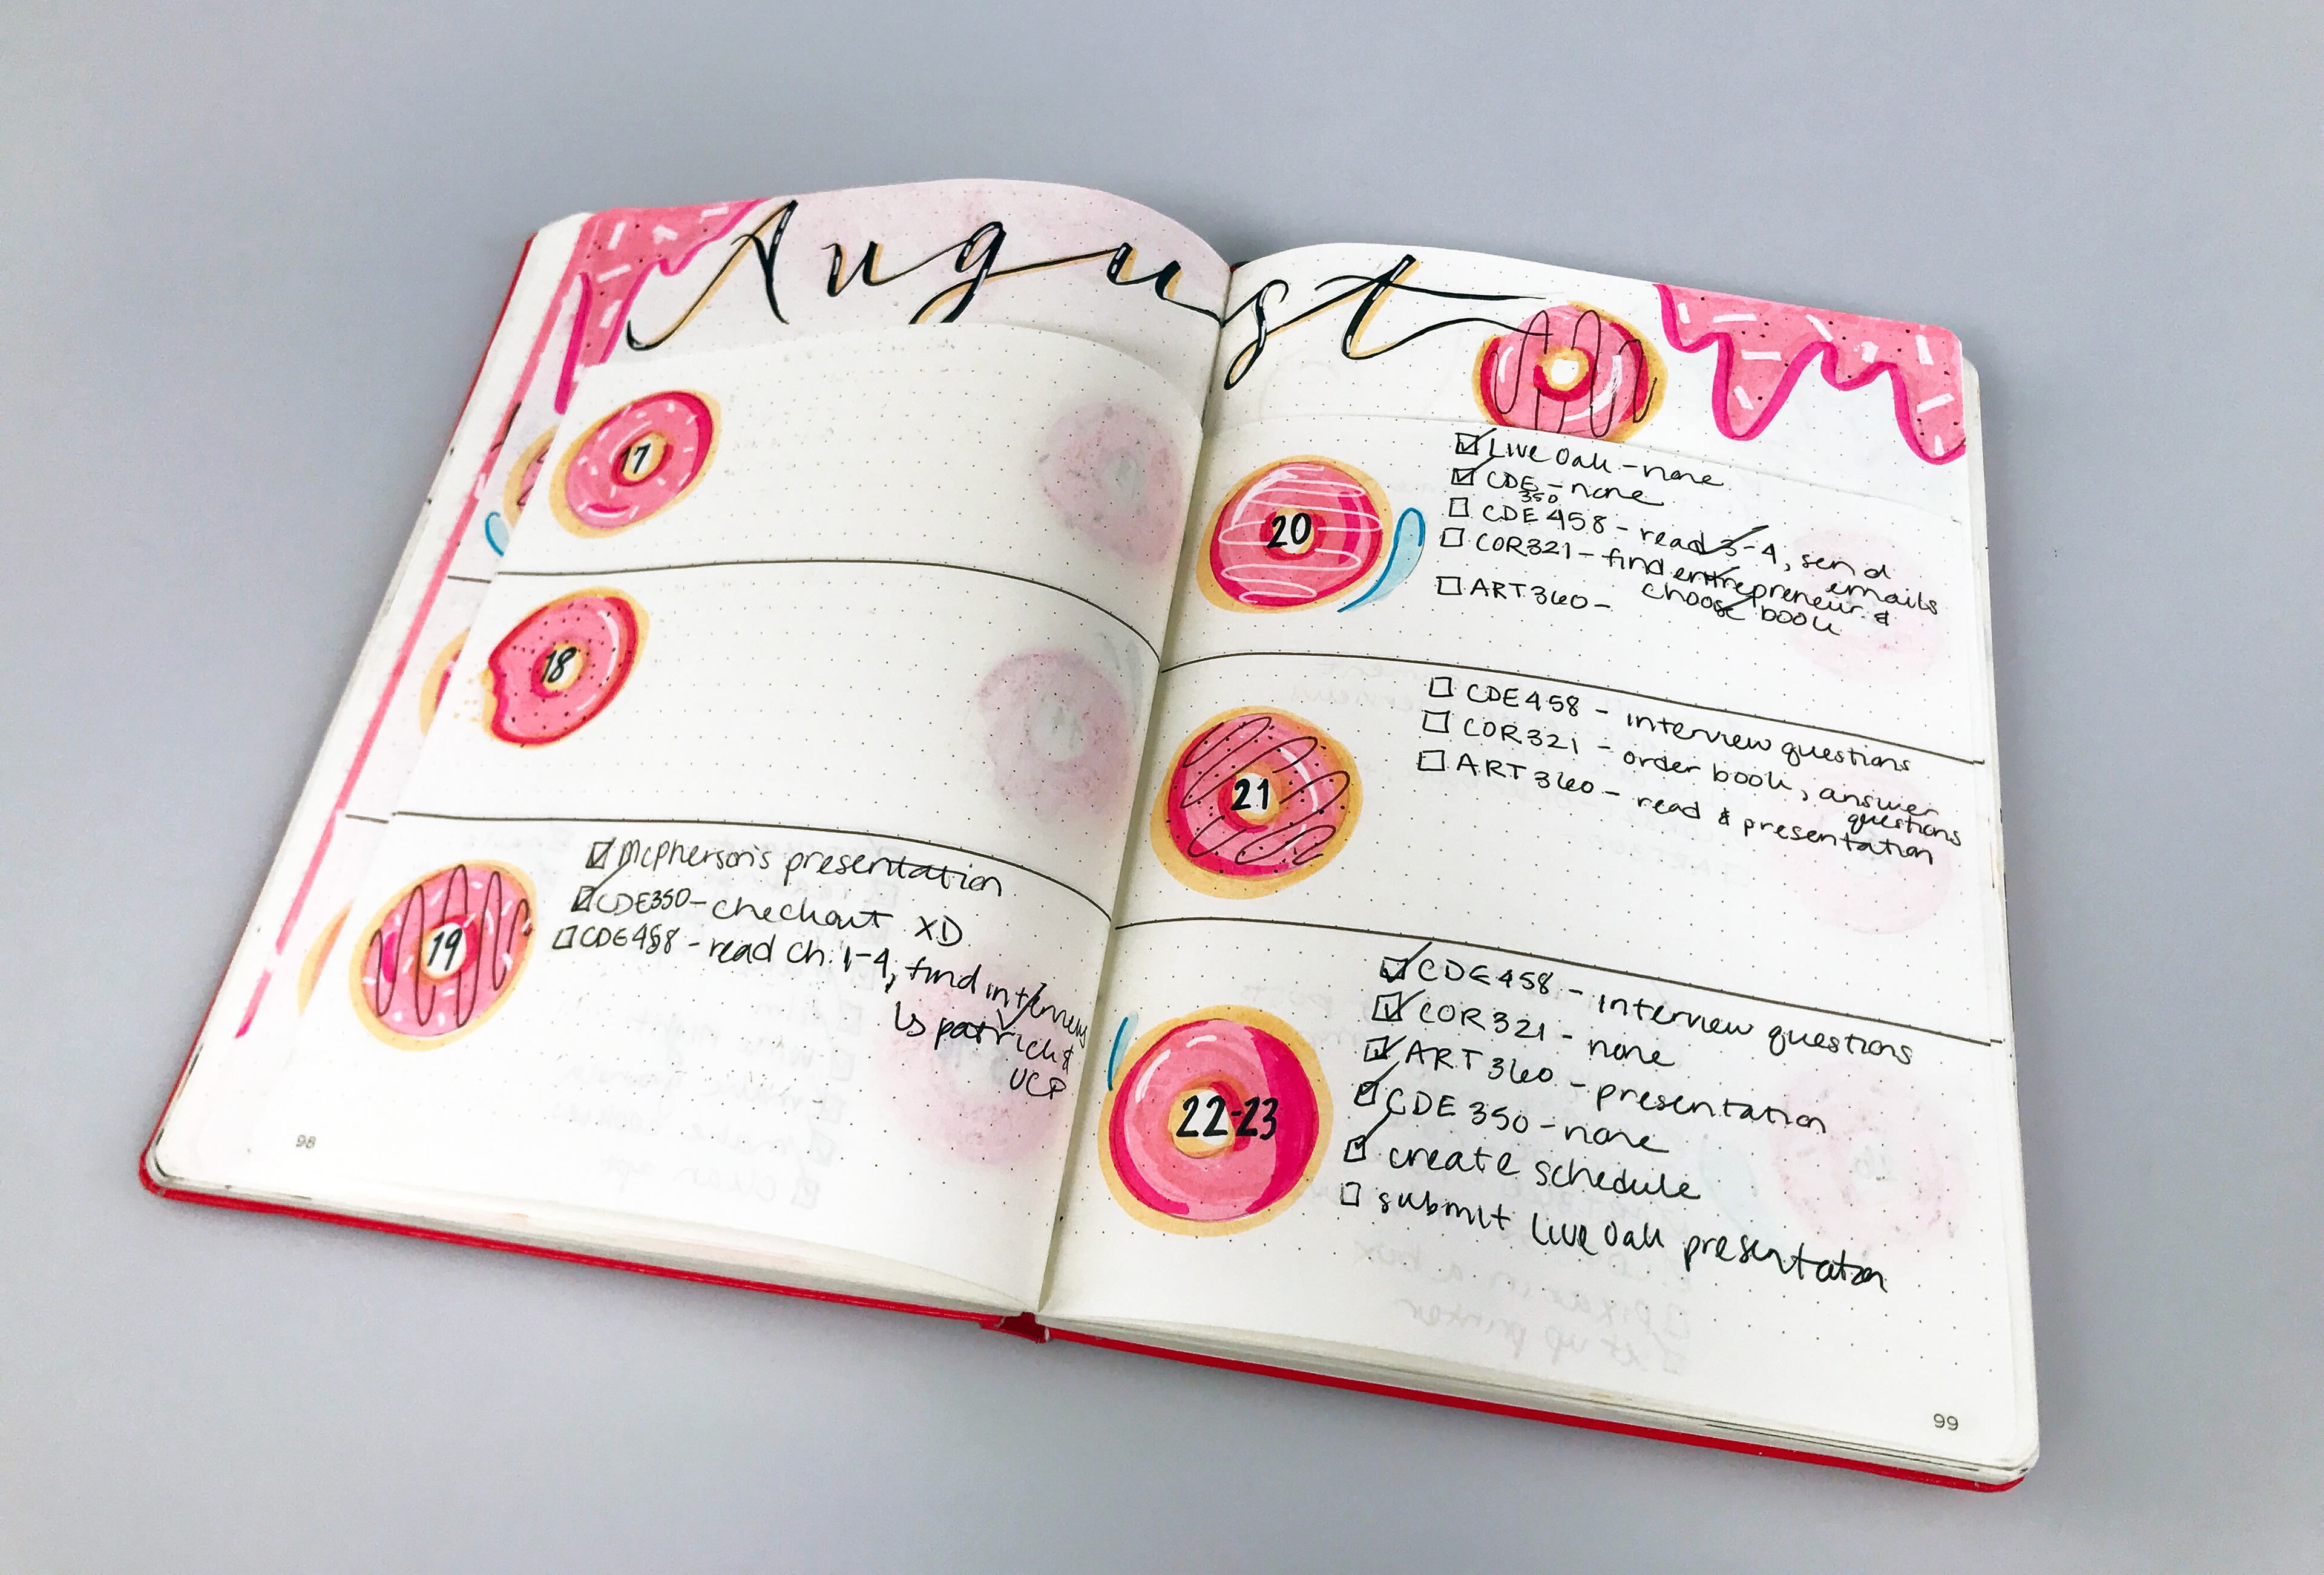 August
17
18
19
McPherson's presentation
CDE350 - checkout XD
CDE458 - read ch. 1-4, find interviews
↳ patrick &
UCP
98
20
Live Oak - none
CDE - none
350
CDE 458 - read 3-4, send
emails
COR321 - find entrepreneur &
choose book
ART 360 -
21
CDE458 - interview questions
COR321 - order book, answer
questions
ART 360 - read & presentation
22-23
CDE458 - interview questions
COR321 - none
ART 360 - presentation
CDE 350 - none
create schedule
submit Live Oak presentation
99